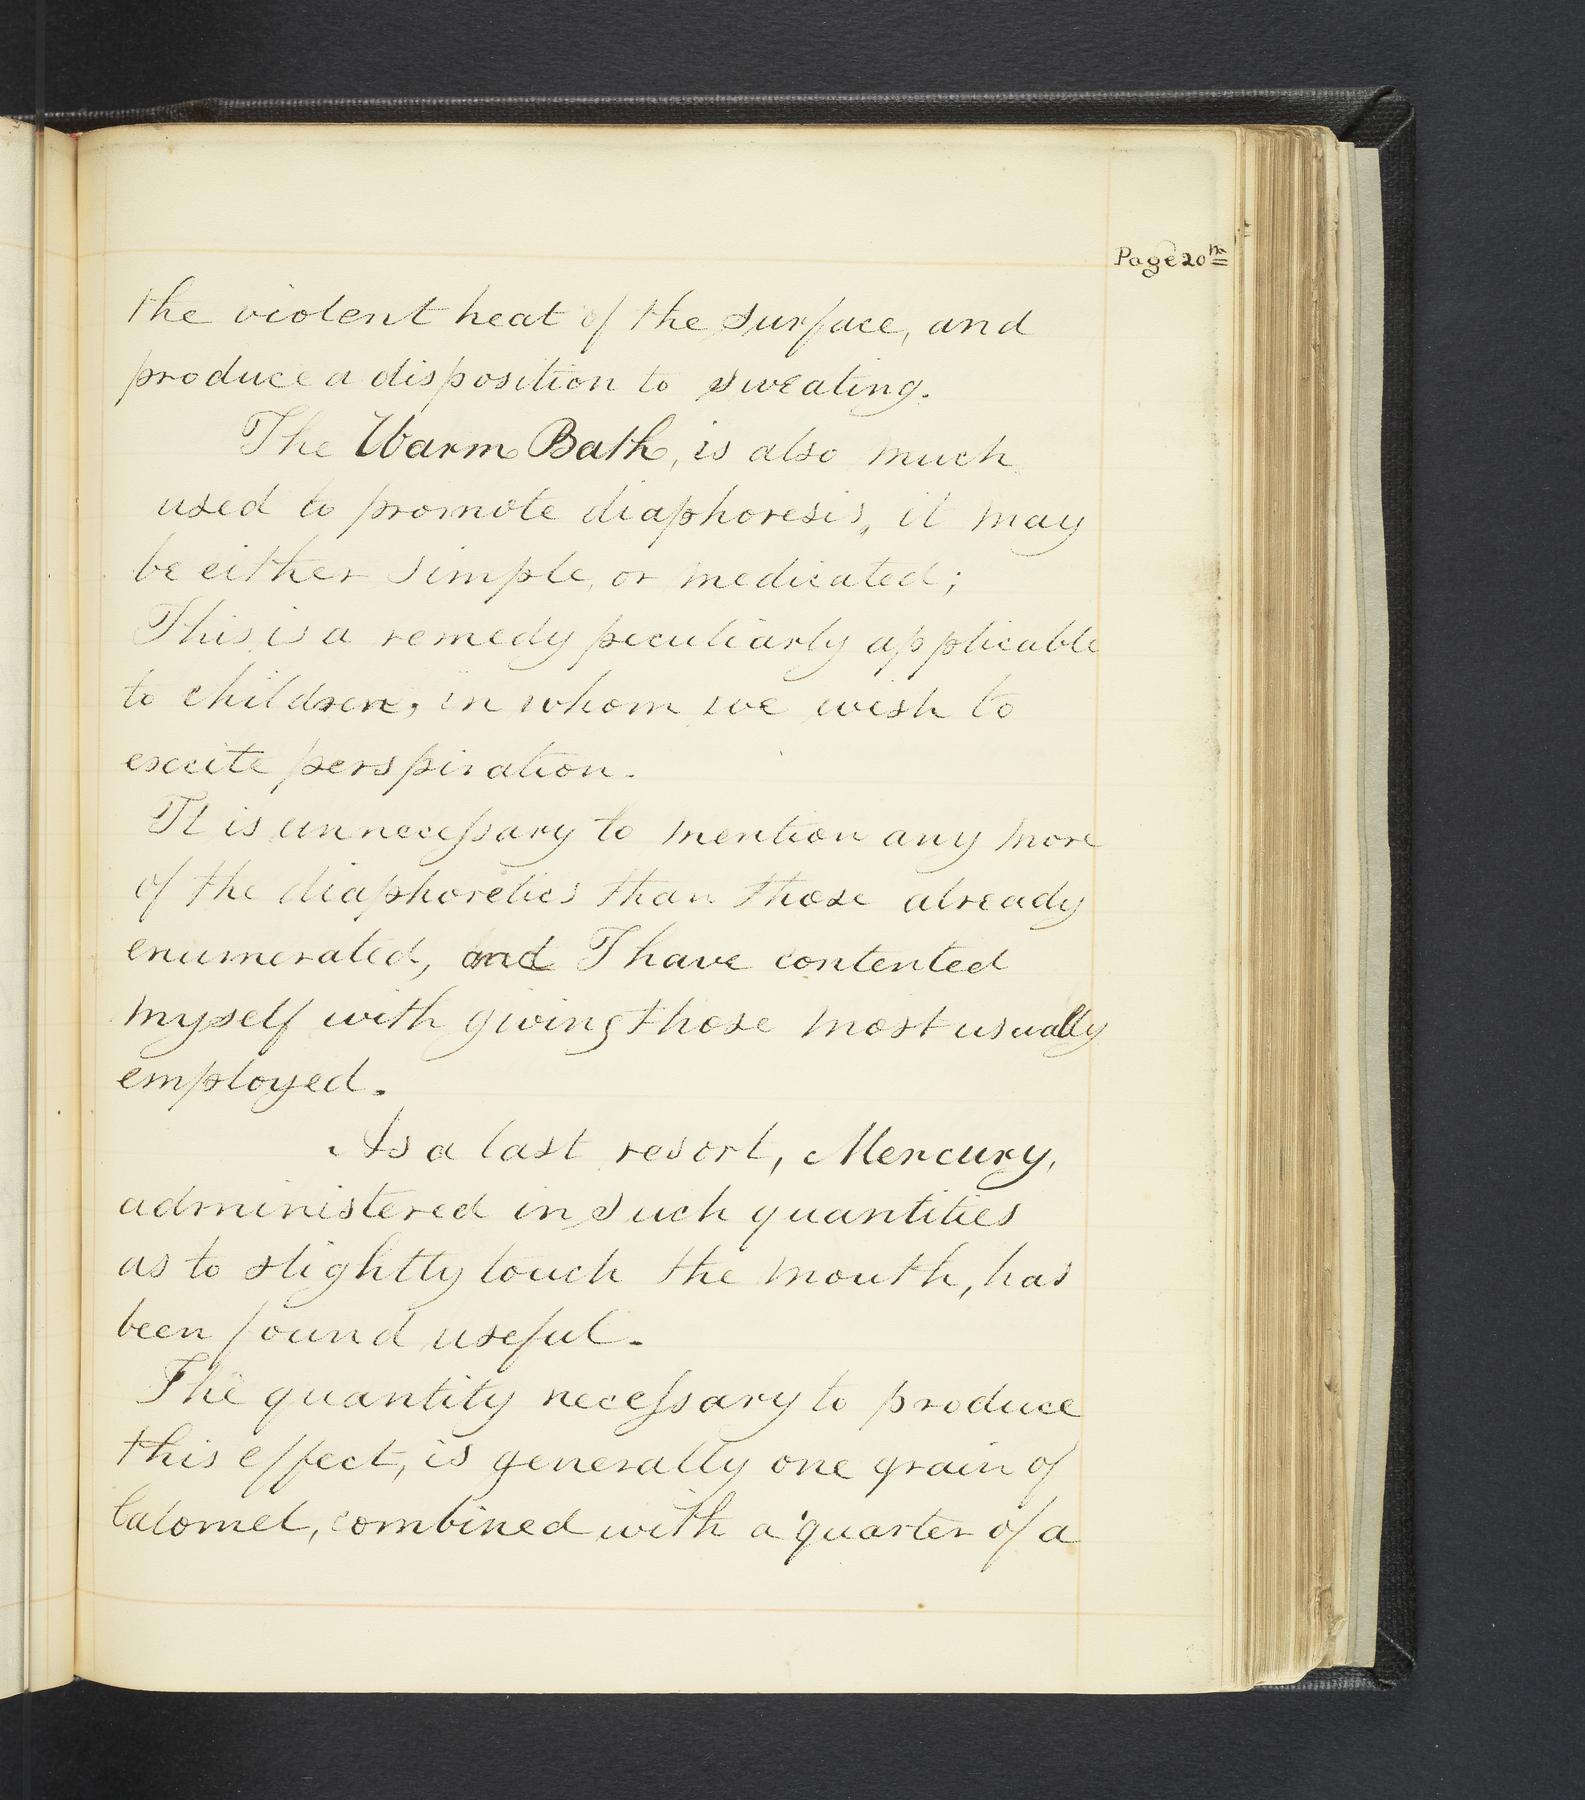 Page 20th
the violent heat of the surface, and
produce a disposition to sweating.
The Warm Bath, is also much
used to promote diaphoresis, it may
be either simple, or medicated;
This is a remedy peculiarly applicable
to children, in whom we wish to
excite perspiration.
It is unnecessary to mention any more
of the diaphoretics than those already
enumerated, and I have contented
myself with giving those most usually
employed.
As a last resort, Mercury,
administered in such quantities
as to slightly touch the mouth, has
been found useful.
The quantity necessary to produce
this effect, is generally one grain of
Calomel, combined with a quarter of a